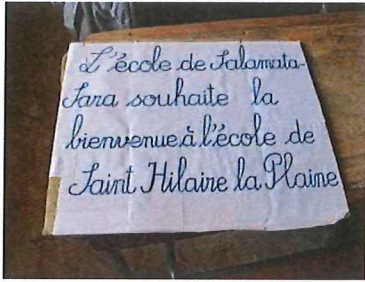 L'école de Salamata-
Sara souhaite la
bienvenue à l'école de
Saint Hilaire la Plaine